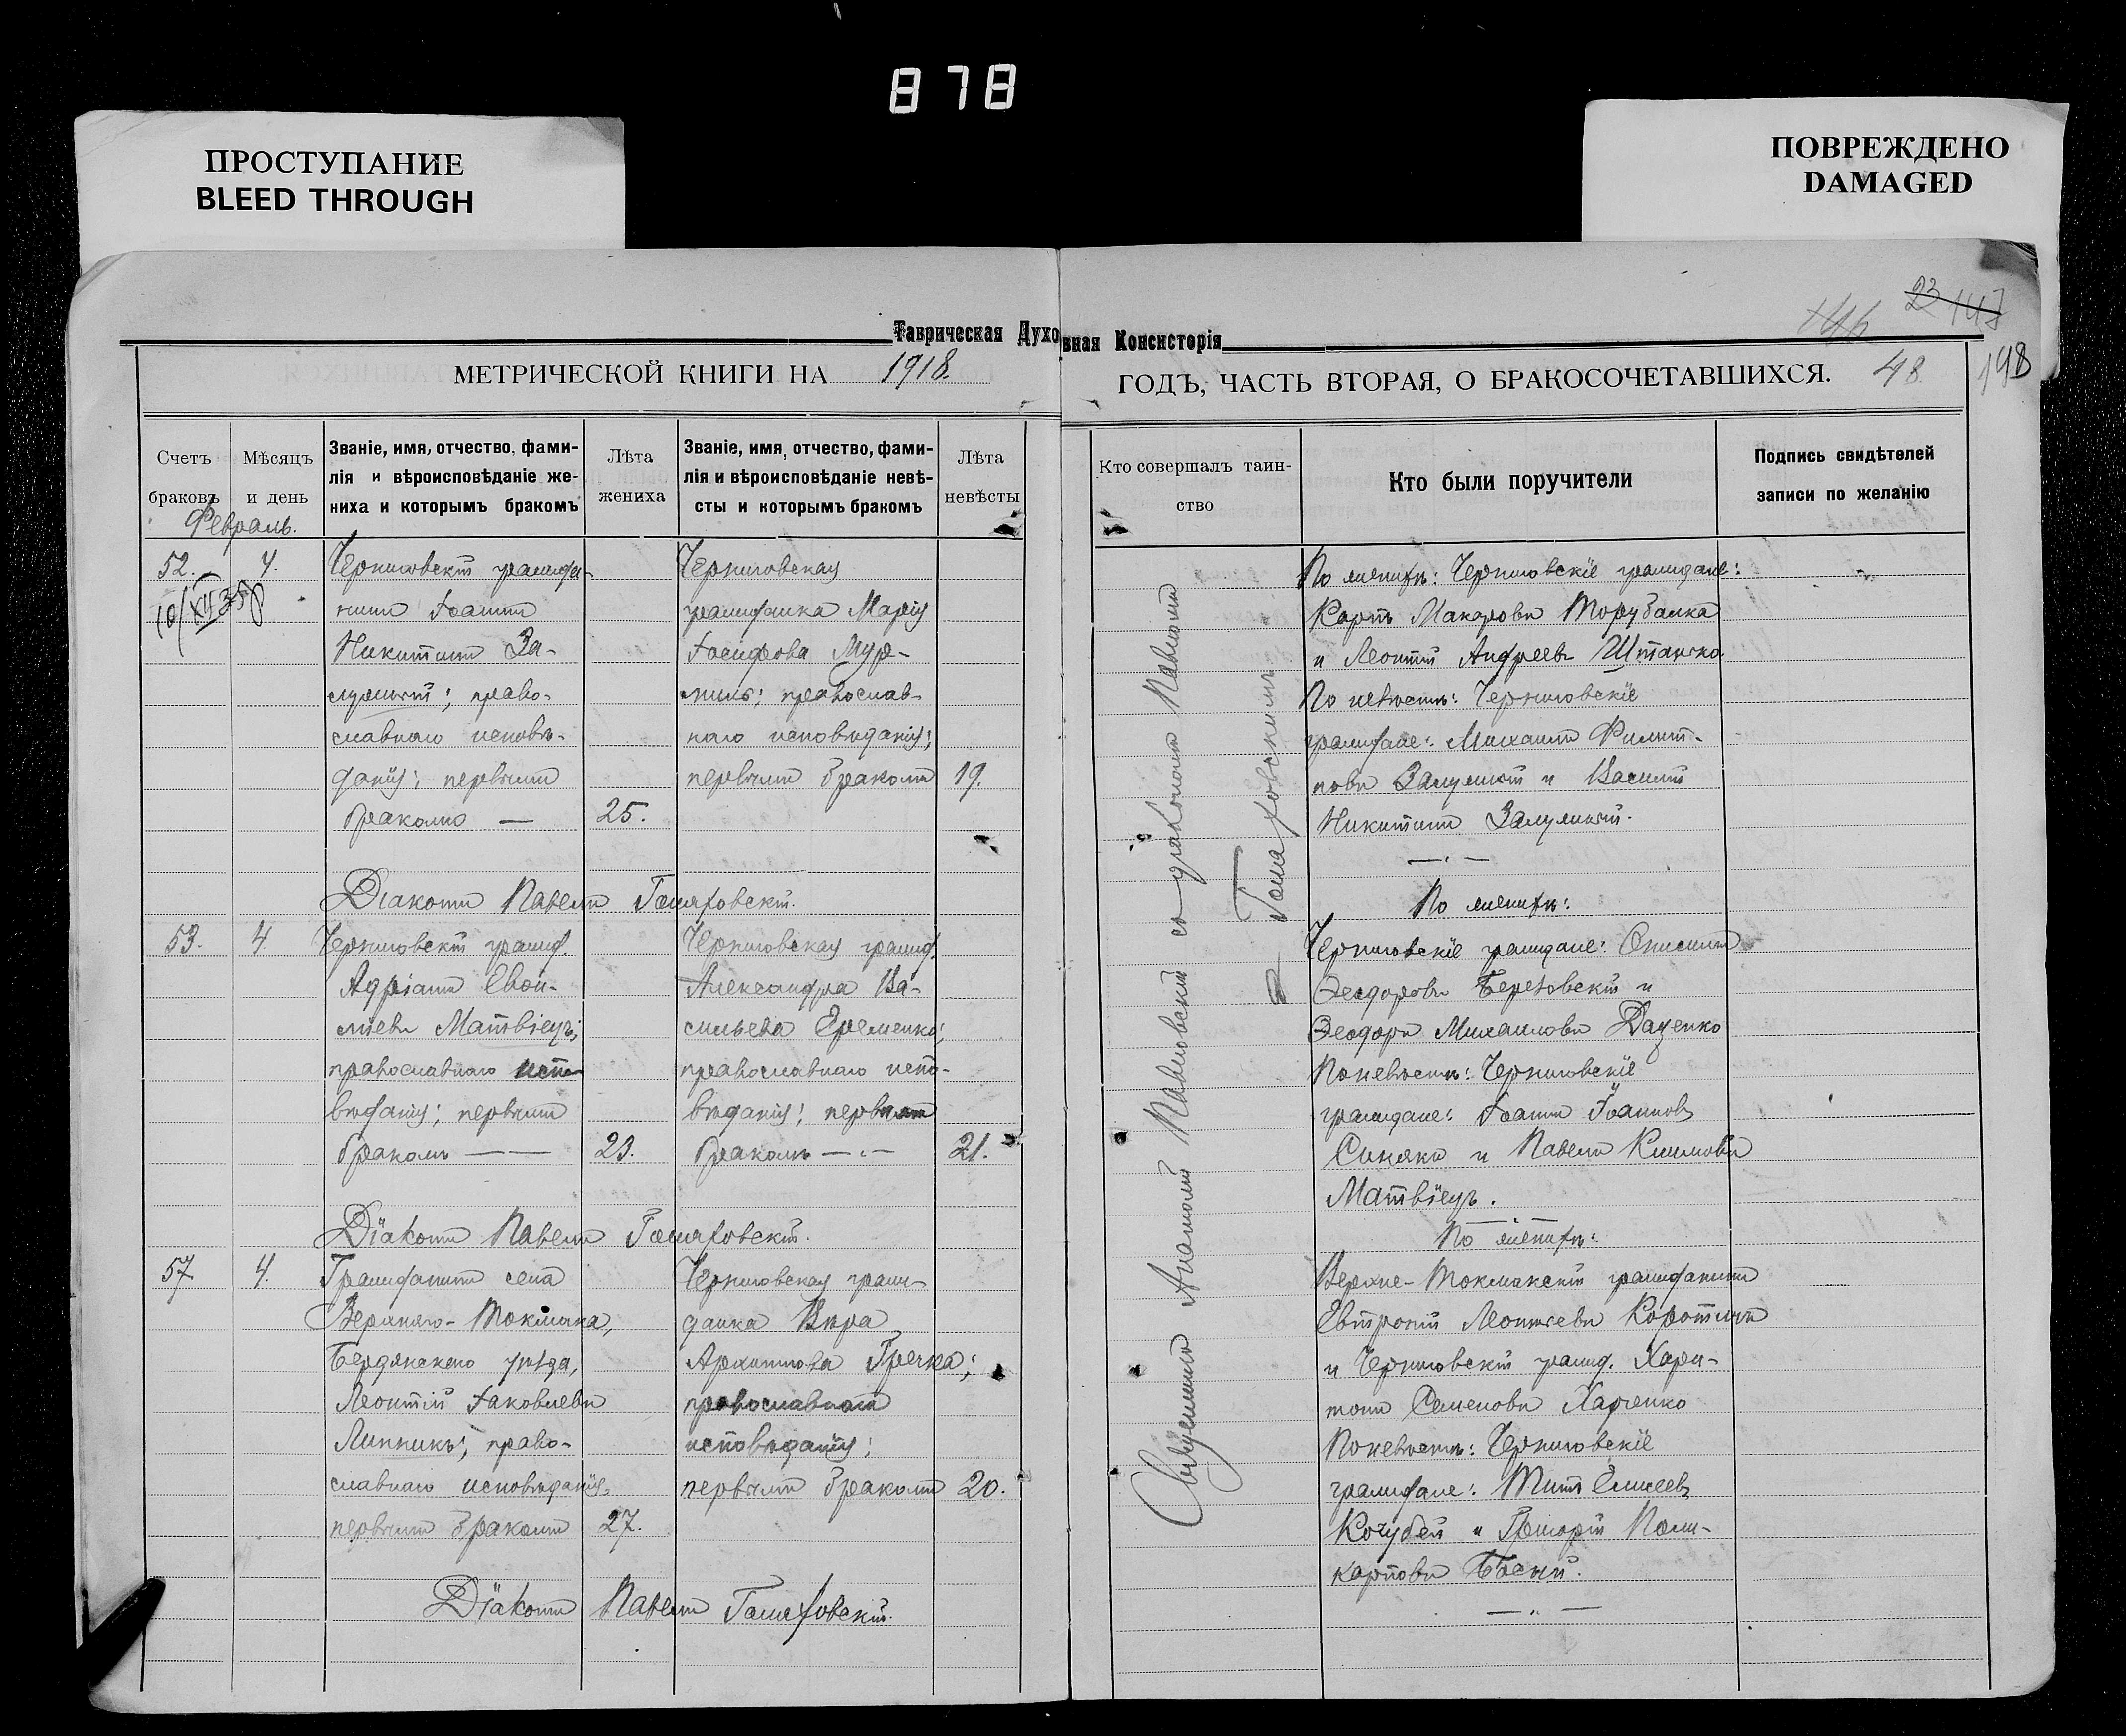 878
ПРОСТУПАНИЕ
BLEED THROUGH
ПОВРЕЖДЕНО
DAMAGED
Таврическая Духовная Консисторія
23 147
146
МЕТРИЧЕСКОЙ КНИГИ НА 1918.
ГОДЪ, ЧАСТЬ ВТОРАЯ, О БРАКОСОЧЕТАВШИХСЯ. 48. 198
Счетъ браковъ
Мѣсяцъ и день
Званіе, имя, отчество, фами-
лія и вѣроисповѣданіе же-
ниха и которымъ бракомъ
Лѣта жениха
Званіе, имя, отчество, фами-
лія и вѣроисповѣданіе невѣ-
сты и которымъ бракомъ
Лѣта невѣсты
Кто совершалъ таин-
ство
Кто были поручители
Подпись свидѣтелей
записи по желанію
Февраль.
52.
4.
Черниговскій гражда-
нинъ Іоаннъ
Никитинъ За-
; право-
славнаго исповѣ-
данія; первымъ
бракомъ —
25.
Черниговская
гражданка Марія
Іосифова
православ-
наго исповѣданія;
первымъ бракомъ
19.
По женихѣ: Черниговскіе граждане:
Карпъ Макаровъ Торубалка
и Леонтій Андреевъ
По невѣстѣ: Черниговскіе
граждане: Михаилъ Филип-
повъ и Василій
Никитинъ
Діаконъ Павелъ
53.
4.
Черниговскій гражд.
Адріанъ Евои-
міевъ Матвіецъ;
православнаго испо-
вѣданія; первымъ
бракомъ — —
23.
Черниговская гражд.
Александра Ва-
сильева Еременко;
православнаго испо-
вѣданія; первымъ
бракомъ —
21.
По женихѣ:
Черниговскіе граждане: Онисимъ
Ѳеодоровъ Березовскій и
Ѳеодоръ Михаиловъ Даценко
По невѣстѣ: Черниговскіе
граждане: Іоаннъ Іоанновъ
Синяка и Павелъ Климовъ
Матвіецъ.
Діаконъ Павелъ
57.
4.
Гражданинъ села
Верхняго-Токмака,
Бердянскаго уѣзда,
Леонтій Іаковлевъ
Линникъ; право-
славнаго исповѣданія,
первымъ бракомъ
27.
Черниговская граж-
данка Вѣра
Архиппова Гречка;
православнаго
исповѣданія;
первымъ бракомъ
20.
По женихѣ:
Верхне-Токмакскій гражданинъ
Евтропій Леонтьевъ Коротичъ
и Черниговскій гражд. Хари-
тонъ Семеновъ Харченко
По невѣстѣ: Черниговскіе
граждане: Титъ Елисеевъ
Кочубей и Григорій Поли-
карповъ
Діаконъ Павелъ
Священникъ Анатолій Павловскій съ діакономъ Павломъ